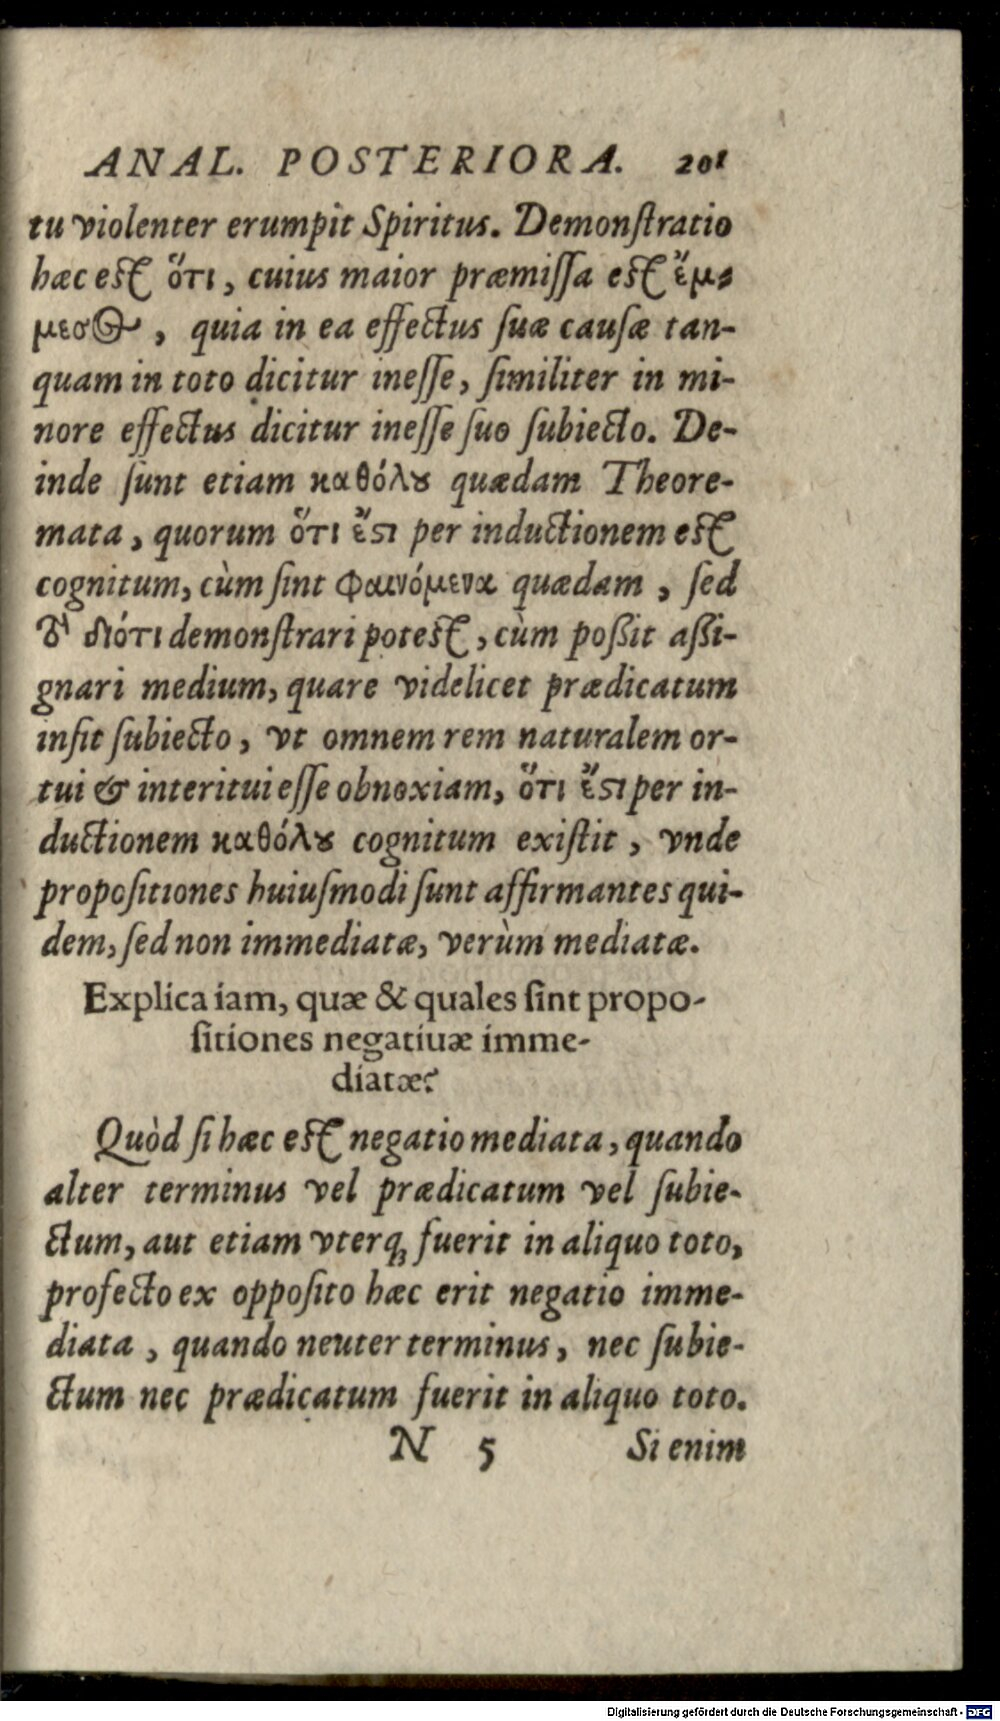 ANAL. POSTERIORA. 201
tu violenter erumpit Spiritus. Demonſtratio
hæc eſt ὅτι, cuius maior præmiſſa eſt ἔμ-
μεσος, quia in ea effectus ſuæ cauſæ tan-
quam in toto dicitur ineſſe, ſimiliter in mi-
nore effectus dicitur ineſſe ſuo ſubiecto. De-
inde ſunt etiam καθόλȣ quædam Theore-
mata, quorum ὅτι ἔϛι per inductionem eſt
cognitum, cùm ſint φαινόμενα quædam, ſed
τὸ διότι demonſtrari poteſt, cùm poßit aßi-
gnari medium, quare videlicet prædicatum
inſit ſubiecto, vt omnem rem naturalem or-
tui & interitui eſſe obnoxiam, ὅτι ἔϛι per in-
ductionem καθόλȣ cognitum exiſtit, vnde
propoſitiones huiuſmodi ſunt affirmantes qui-
dem, ſed non immediatæ, verùm mediatæ.
Explica iam, quæ & quales ſint propo-
ſitiones negatiuæ imme-
diatæ?
Quòd ſi hæc eſt negatio mediata, quando
alter terminus vel prædicatum vel ſubie-
ctum, aut etiam vterq; fuerit in aliquo toto,
profecto ex oppoſito hæc erit negatio imme-
diata, quando neuter terminus, nec ſubie-
ctum nec prædicatum fuerit in aliquo toto.
N 5 Si enim
Digitalisierung gefördert durch die Deutsche Forschungsgemeinschaft - DFG